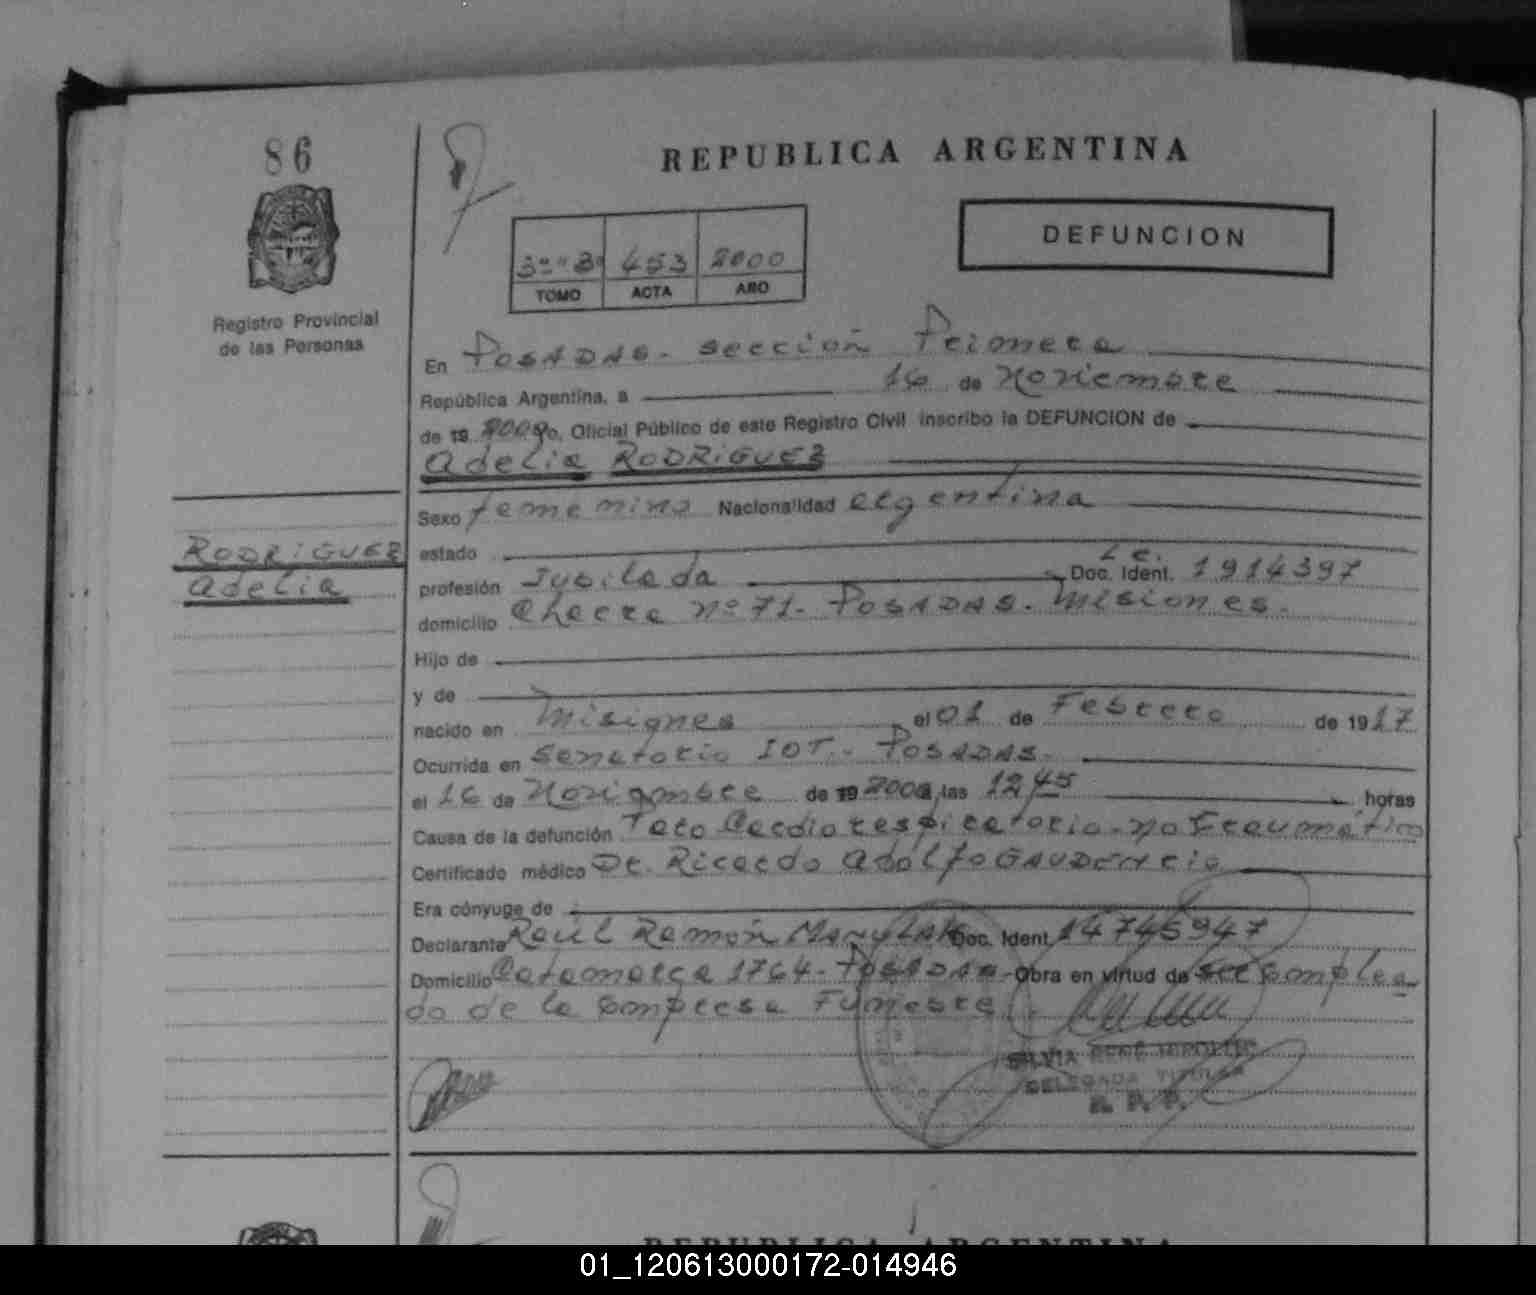 86
REPUBLICA ARGENTINA
DEFUNCION
3º "B" 453 2000
TOMO ACTA AÑO
Registro Provincial
de las Personas
En POSADAS - sección Primera
República Argentina, a 16 de Noviembre
de 19 2000 yo, Oficial Público de este Registro Civil inscribo la DEFUNCION de
Adelia RODRIGUEZ
Sexo femenino Nacionalidad argentina
RODRIGUEZ
Adelia
estado
profesión Jubilada L.C. Doc. Ident. 1914397
domicilio Chacra nº 71 - POSADAS. Misiones.
Hijo de
y de
nacido en Misiones el 01 de Febrero de 19 17
Ocurrida en Sanatorio IOT. - POSADAS.
el 16 de Noviembre de 19 2000 a las 12,45 horas
Causa de la defunción Paro Cardiorespiratorio - no traumático
Certificado médico Dr. Ricardo Adolfo GAUDENCIO
Era cónyuge de
Declarante Raúl Ramón Doc. Ident. 14745947
Domicilio Catamarca 1764 - POSADAS - Obra en virtud de ser emplea-
do de la empresa Funebre.
SILVIA
DELEGADA TITULAR
R. P. P.
REPUBLICA ARGENTINA
01_120613000172-014946